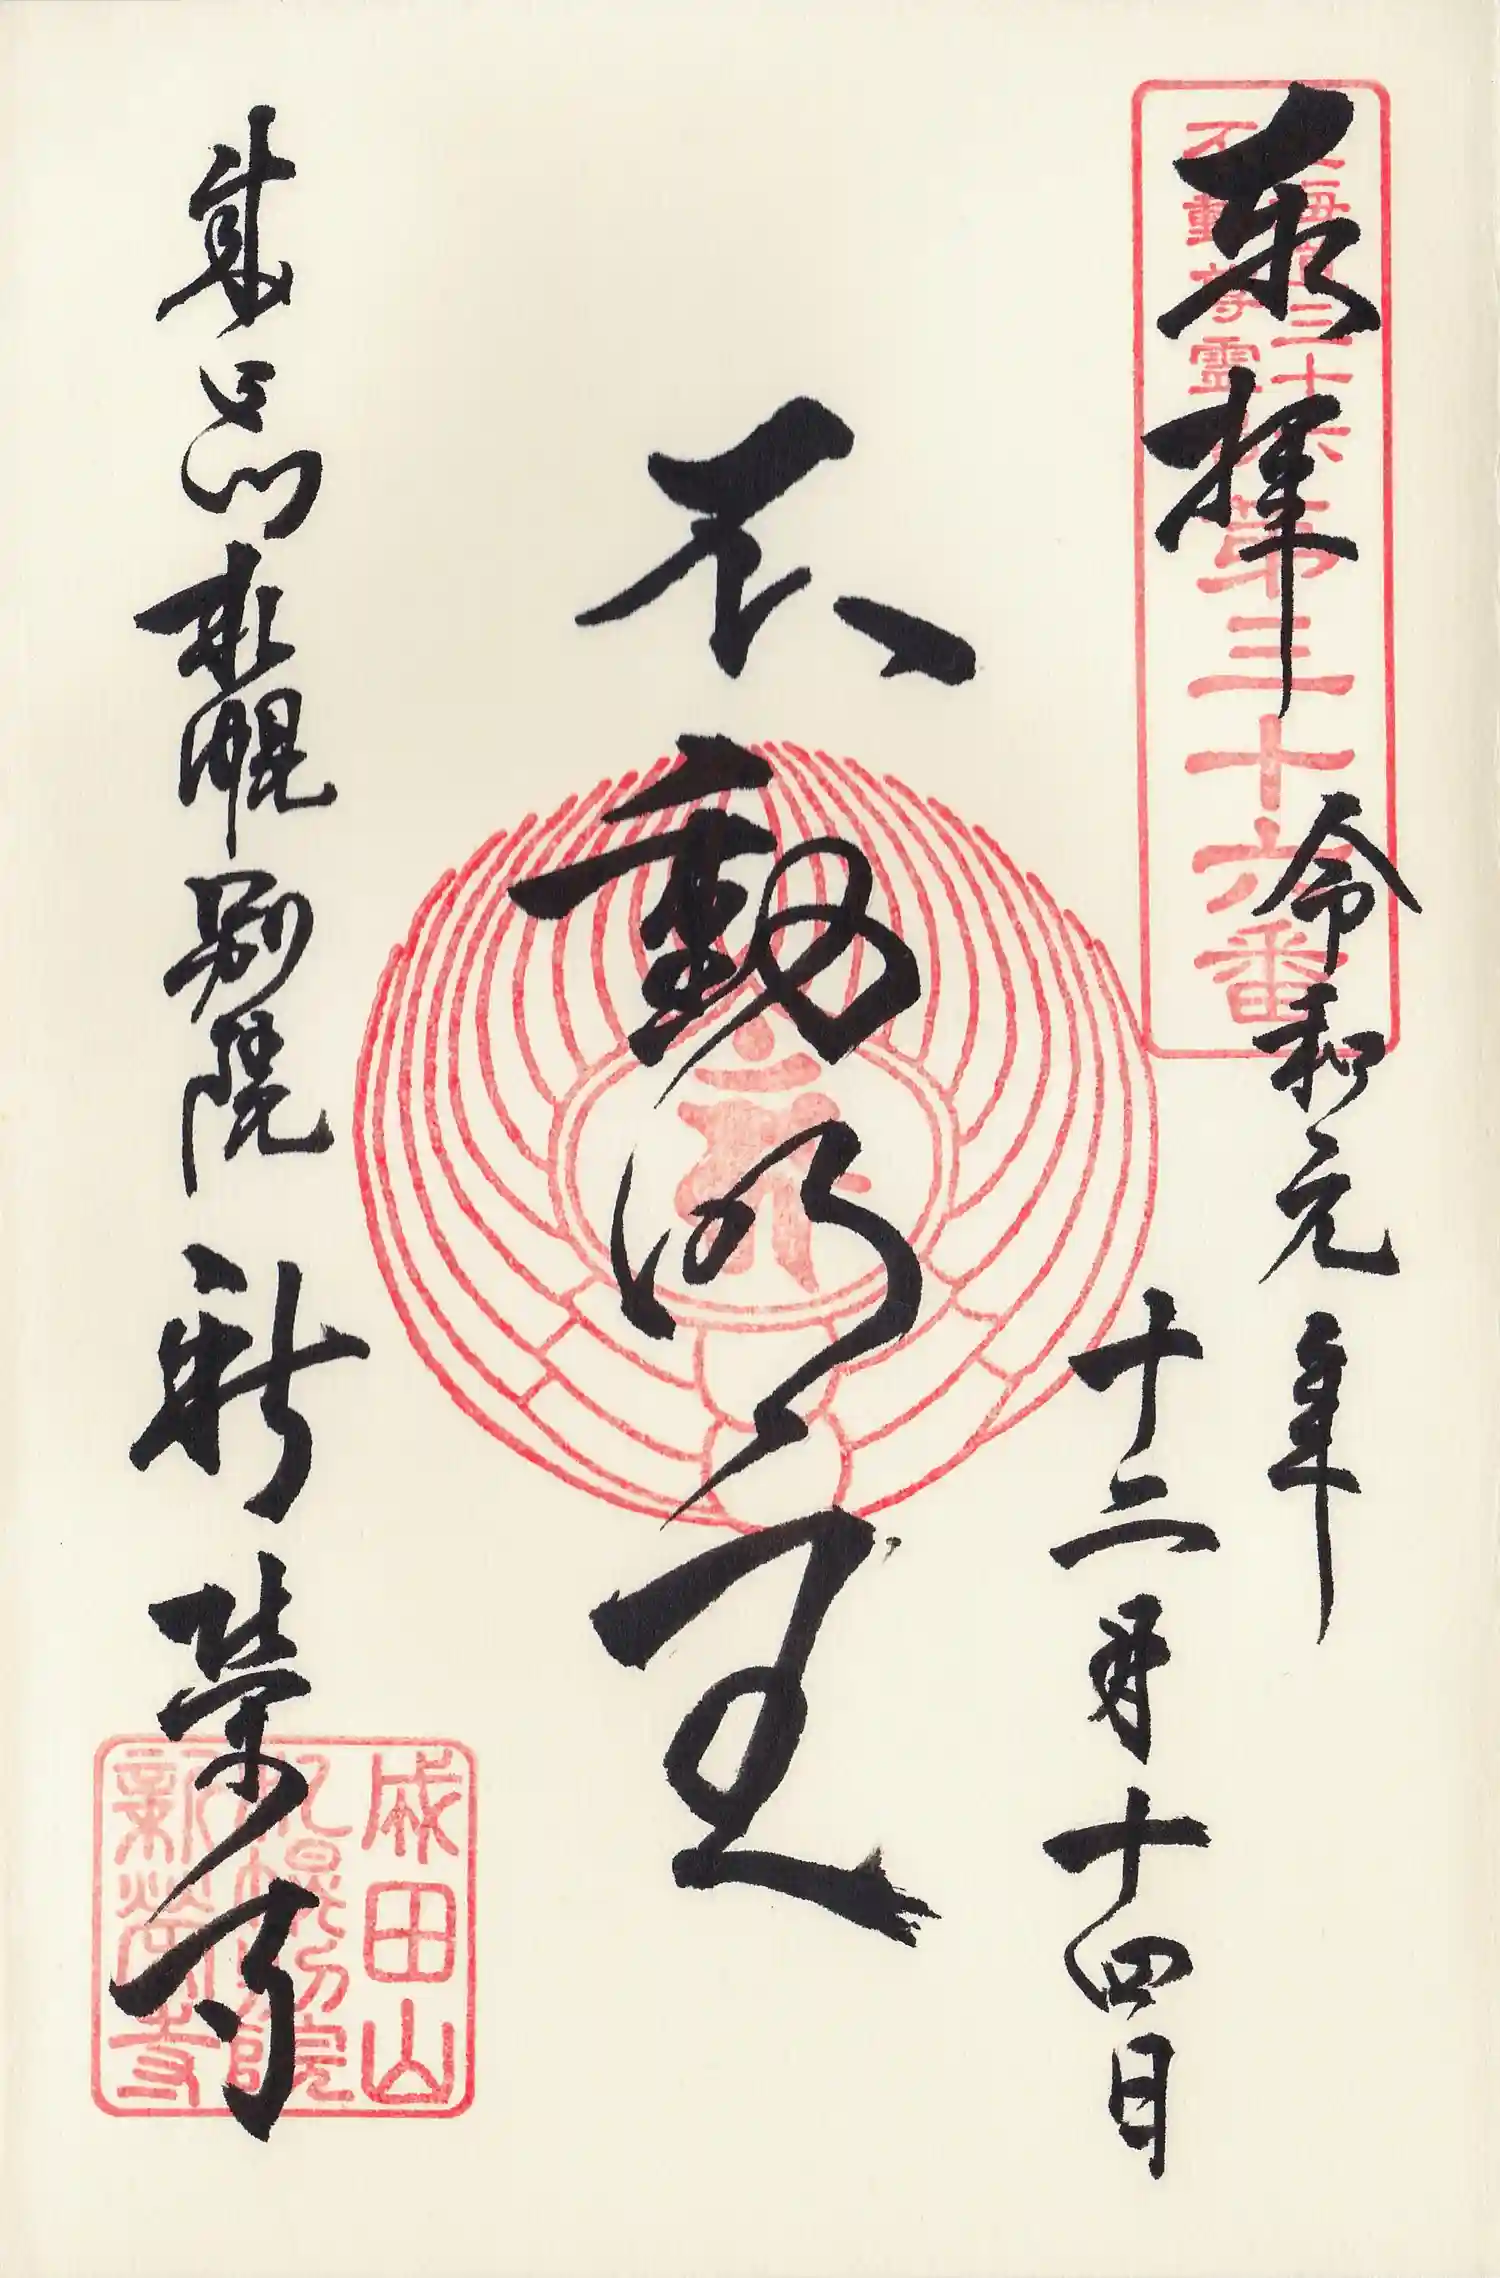 奉拝
北海道三十六
不動尊霊場
第三十六番
令和元年
十二月十四日
不動明王
成田山札幌別院新栄寺
成田山
札幌別院
新榮寺